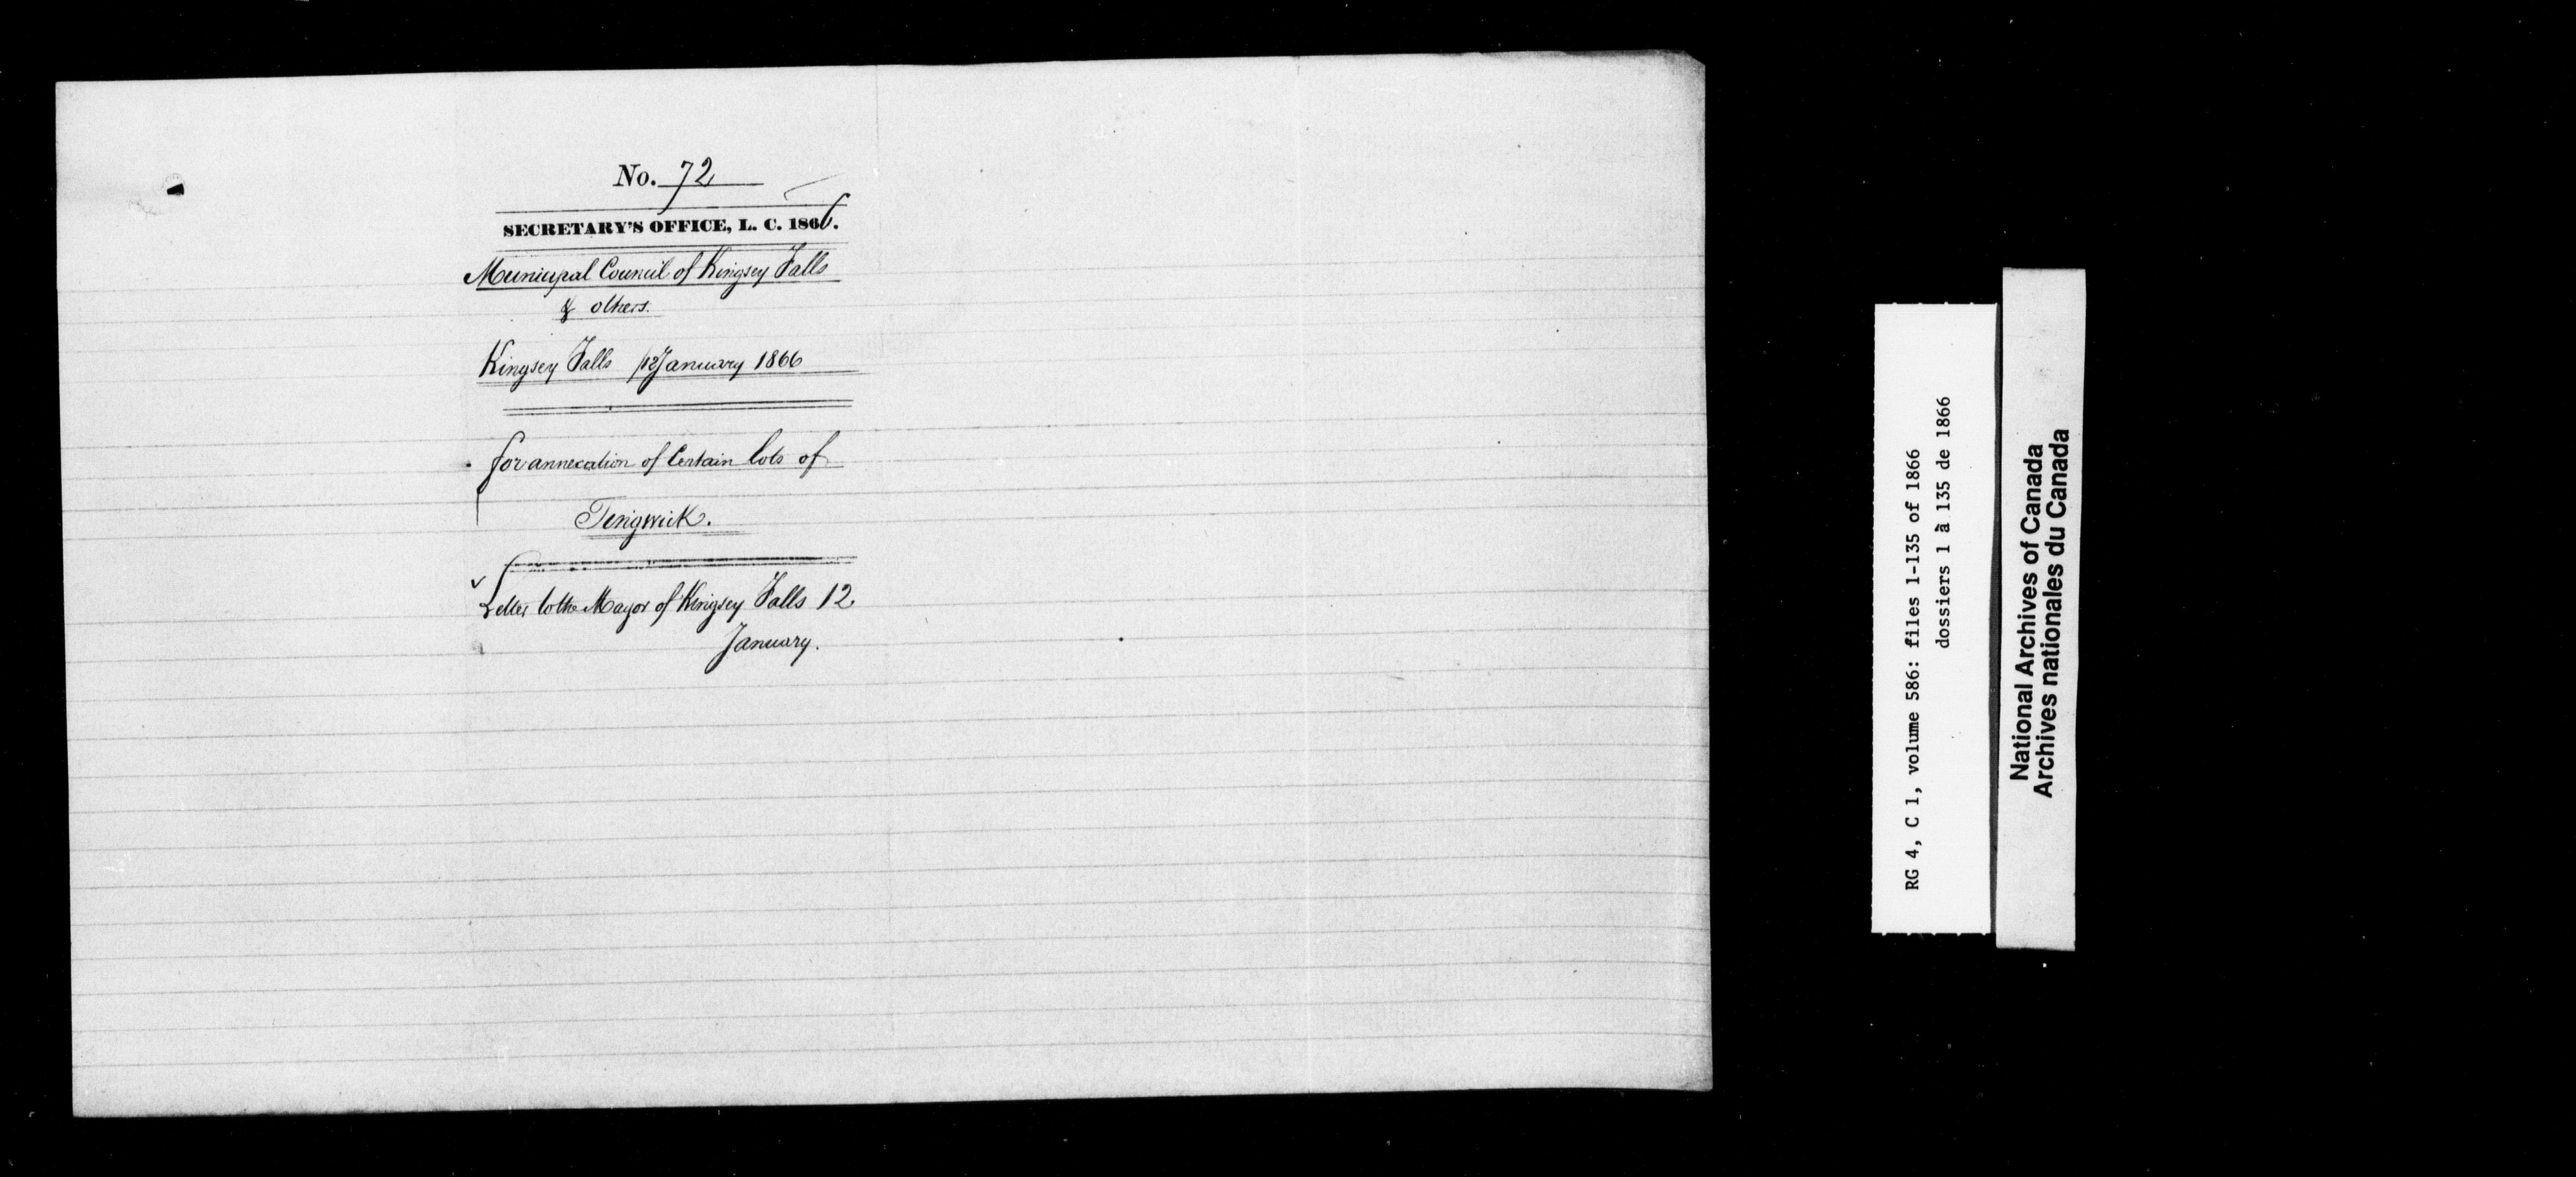 No. 72
SECRETARY'S OFFICE, L. C. 1866.
Municipal Council of Kingsey Falls
& others.
Kingsey Falls /12 January 1866
for annexation of Certain lots of
Tingwick.
Letter to the Mayor of Kingsey Falls 12
January.
RG 4, C 1, volume 586: files 1-135 of 1866
dossiers 1 à 135 de 1866
National Archives of Canada
Archives nationales du Canada